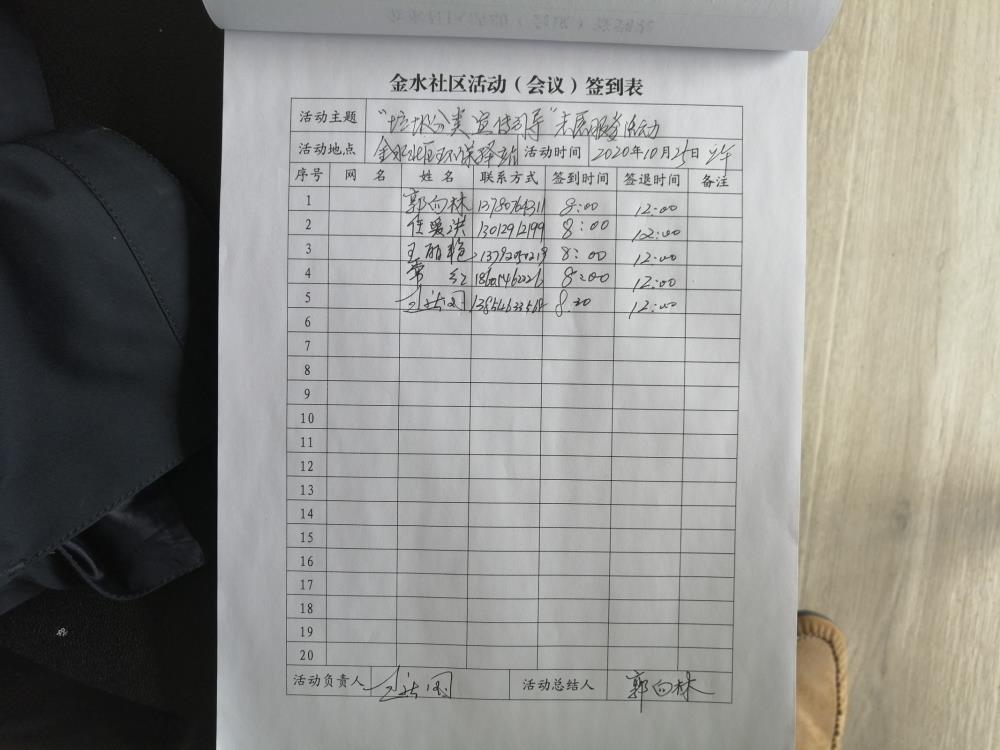 金水社区活动（会议）签到表
活动主题 "垃圾分类宣传引导"志愿服务活动
活动地点 金水社区环保驿站 活动时间 2020年10月25日 上午
序号 网 名 姓 名 联系方式 签到时间 签退时间 备注
1 郭向林 13780764311 8:00 12:00
2 任爱洪 13012912199 8:00 12:00
3 王丽艳 8:00 12:00
4 常红 8:00 12:00
5 12:00
6
7
8
9
10
11
12
13
14
15
16
17
18
19
20
活动负责人 活动总结人 郭向林